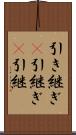 引き継ぎ
×引継ぎ
×引継